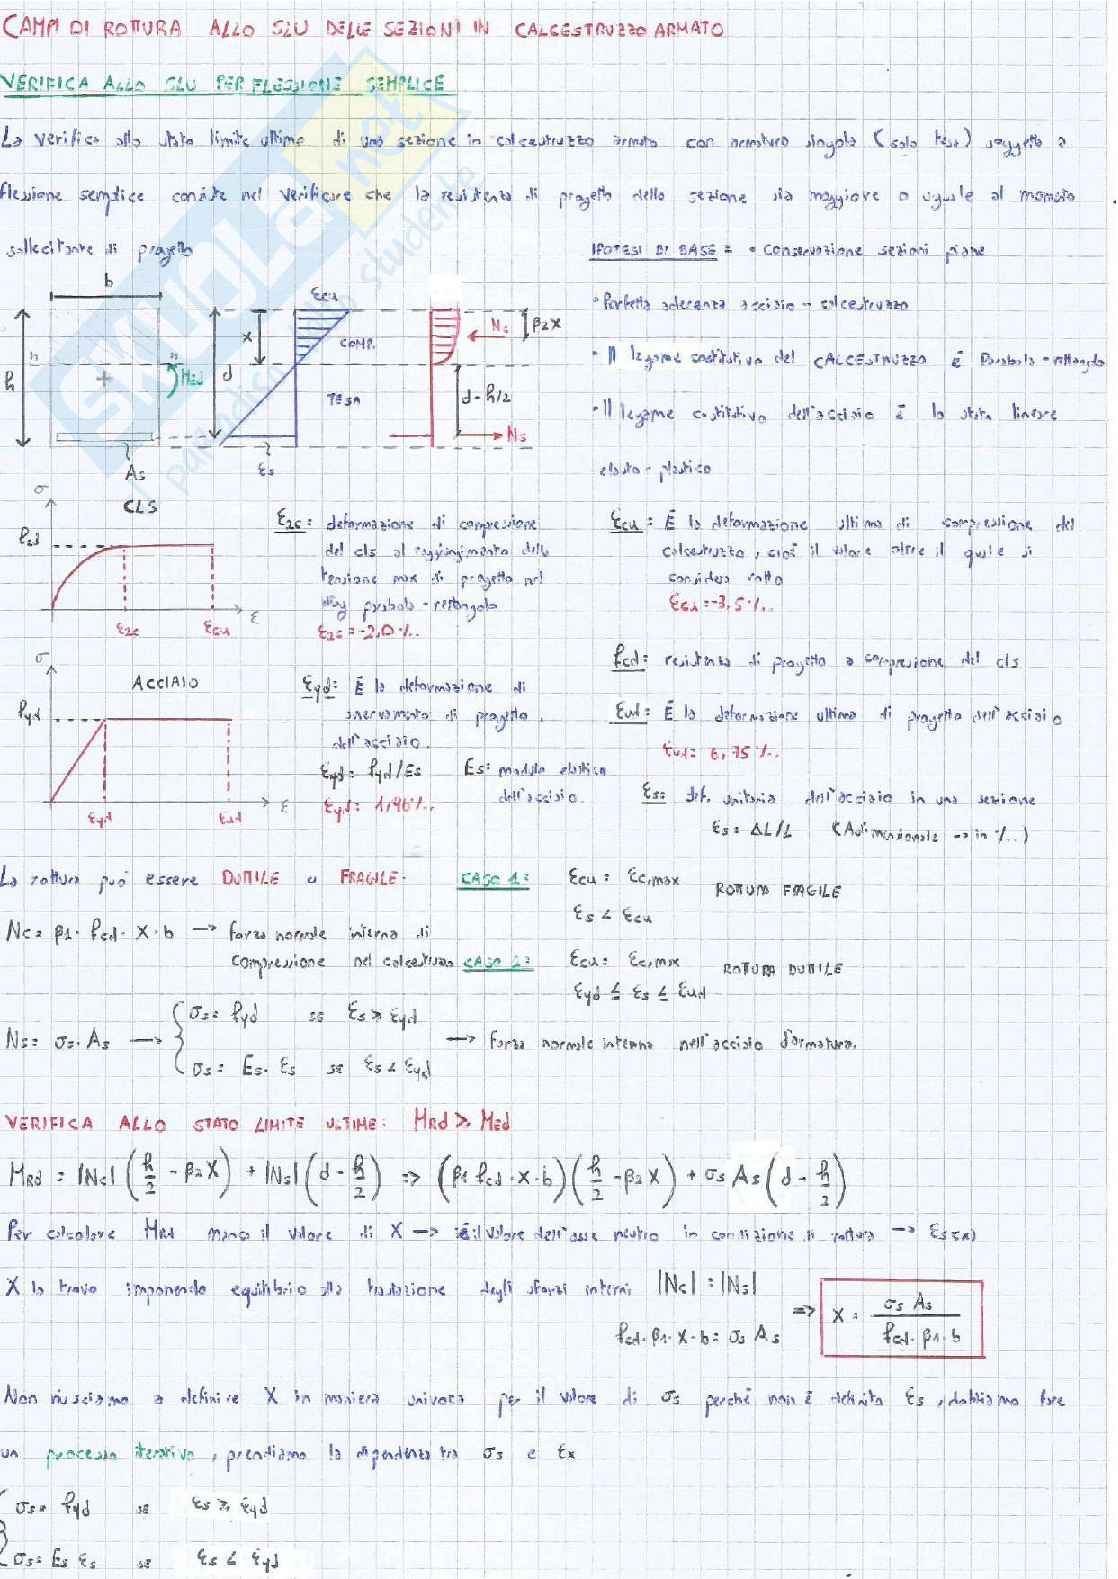 CAMPI DI ROTTURA ALLO SLU DELLE SEZIONI IN CALCESTRUZZO ARMATO
VERIFICA ALLO SLU PER FLESSIONE SEMPLICE
La verifica allo stato limite ultimo di una sezione in calcestruzzo armato con armatura singola (solo tesa) soggetta a
flessione semplice consiste nel verificare che la resistenza di progetto della sezione sia maggiore o uguale al momento
sollecitante di progetto
IPOTESI DI BASE = • Conservazione sezioni piane
• Perfetta aderenza acciaio - calcestruzzo
• Il legame costitutivo del CALCESTRUZZO è Parabola - rettangolo
• Il legame costitutivo dell'acciaio è lo stato lineare
elasto-plastico
b
h
n
n
MEd
As
d
X
εcu
COMP.
TESA
εs
Nc
β2X
d-h/2
Ns
SKUOLA.net
σ
CLS
fcd
ε2c
εcu
ε
ε2c: deformazione di compressione
del cls al raggiungimento della
tensione max di progetto nel
parabola-rettangolo
ε2c = -2,0 ‰
εcu: È la deformazione ultima di compressione del
calcestruzzo, cioè il valore oltre il quale si
considera rotto
εcu = -3,5 ‰
fcd: resistenza di progetto a compressione del cls
σ
ACCIAIO
fyd
εyd
εud
ε
εyd: È la deformazione di
snervamento di progetto
dell'acciaio.
εyd = fyd/Es
εyd = 1,96‰
Es: modulo elastico
dell'acciaio.
εud: È la deformazione ultima di progetto dell'acciaio
εud = 6,75 ‰
εs: def. unitaria dell'acciaio in una sezione
εs = ΔL/L (Adimensionale → in ‰)
La rottura può essere DUTTILE o FRAGILE.
CASO 1: εcu = εc,max ROTTURA FRAGILE
εs < εcu
Nc = β1 · fcd · X · b → forza normale interna di
compressione nel calcestruzzo
CASO 2: εcu = εc,max ROTTURA DUTTILE
εyd ≤ εs ≤ εud
Ns = σs · As → { σs = fyd se εs ≥ εyd
σs = Es · εs se εs < εyd
→ forza normale interna nell'acciaio d'armatura.
VERIFICA ALLO STATO LIMITE ULTIME: MRd ≥ MEd
MRd = |Nc| (h/2 - β2X) + |Ns| (d - h/2) => (β1 fcd · X · b)(h/2 - β2X) + σs As (d - h/2)
Per calcolare MRd manca il valore di X → è il valore dell'asse neutro in condizione di rottura → εs(x)
X lo trovo imponendo equilibrio alla traslazione degli sforzi interni |Nc| = |Ns|
fcd · β1 · X · b = σs As
=> X = σs As / fcd · β1 · b
Non riusciamo a definire X in maniera univoca per il valore di σs perché non è definita εs, dobbiamo fare
un processo iterativo, prendiamo la dipendenza tra σs e εx
{ σs = fyd se εs ≥ εyd
σs = Es εs se εs < εyd